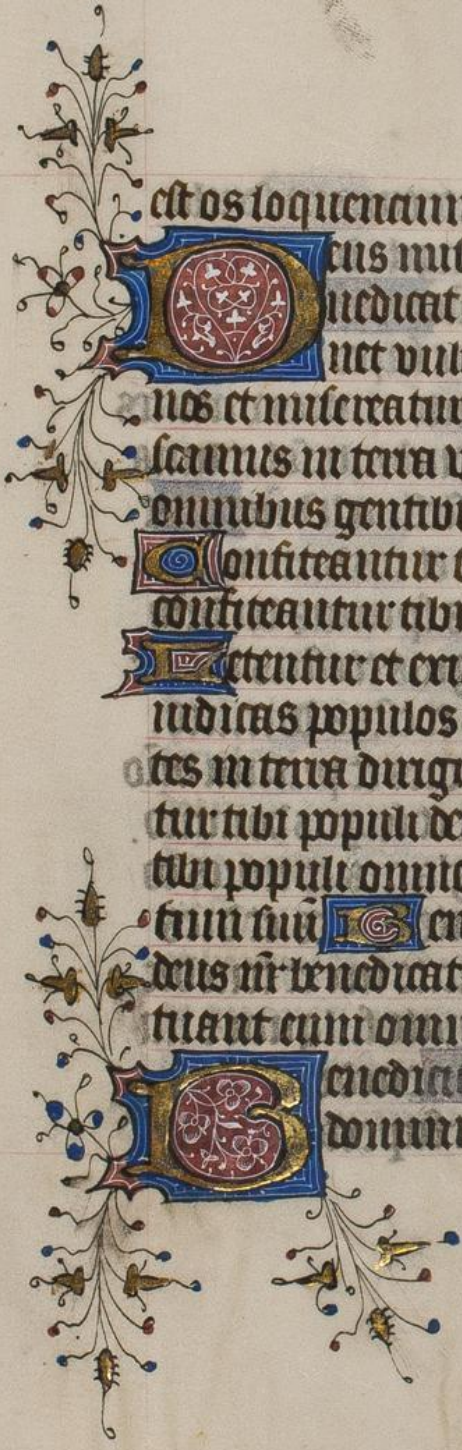 est os loquencium
Deus mi
nedicat
net vul
nos et misereatur
scamus in terra v
omnibus gentib
Confiteantur t
confiteantur tibi
Letentur et ex
iudicas populos
tes in terra dirig
tur tibi populi de
tibi populi omne
tum suū Ben
deus nr̄ benedicat
tuant eum omn
Benedict
domin